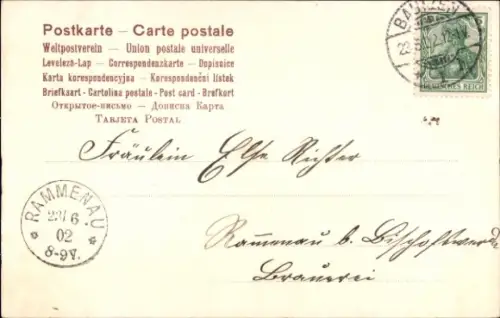 Postkarte — Carte postale
Weltpostverein — Union postale universelle
Levelezö-Lap — Correspondenzkarte — Dopisnice
Karta korespondencyjna — Korespondenční lístek
Briefkaart - Cartolina postale - Post card - Brefkort
Открытое-письмо — Дописна Карта
Tarjeta Postal
BAUTZEN
DEUTSCHES REICH
Fräulein Else Richter
RAMMENAU
23/6
02
8-9V.
Rammenau b. Bischofswerda
Brauerei